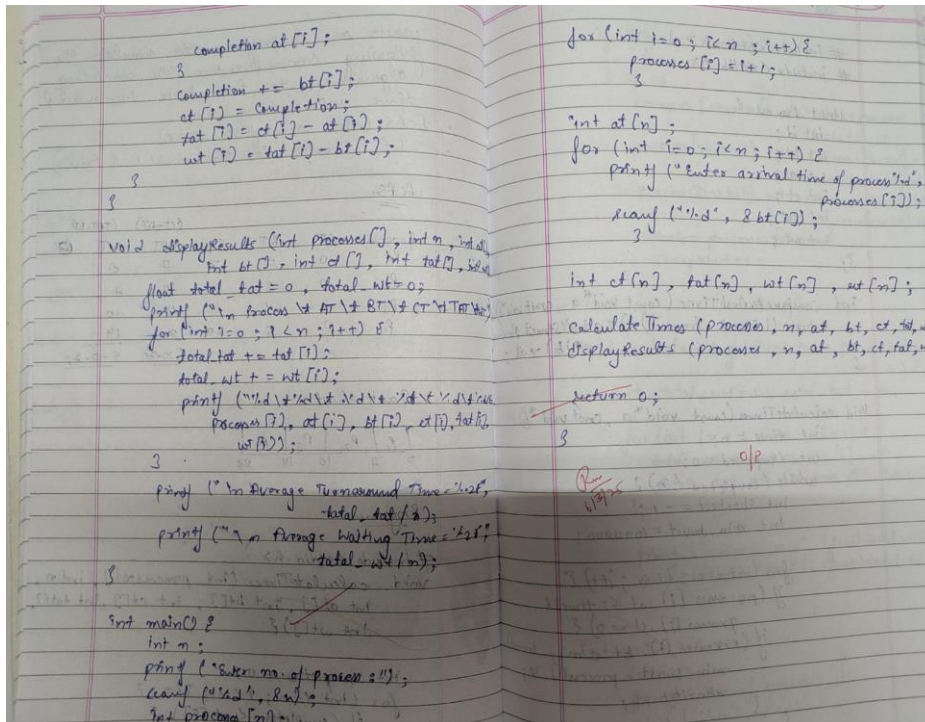 completion at [i];
}
completion += bt[i];
ct [i] = completion;
tat [i] = ct[i] - at [i];
wt [i] = tat[i] - bt[i];
}
}
void displayResults (int processes[], int n, int at[],
int bt[], int ct [], int tat[], int wt
float total_tat = 0, total_wt = 0;
printf ("\n Process \t AT \t BT \t CT \t TAT \t
for (int i=0; i<n; i++) {
total_tat += tat [i];
total_wt += wt [i];
printf ("%d \t %d \t %d \t %d \t %d \t
processes [i], at[i], bt[i], ct[i], tat[i],
wt[i]);
}
printf ("\n Average Turnaround Time = %.2f",
total_tat / n);
printf ("\n Average Waiting Time = %.2f",
total_wt / n);
}
int main() {
int n;
printf ("Enter no. of process : ");
scanf ("%d", &n);
int processes [n];
for (int i=0; i<n; i++) {
processes [i] = i+1;
}
int at [n];
for (int i=0; i<n; i++) {
printf ("Enter arrival time of process %d",
processes [i]);
scanf ("%d", &bt[i]);
}
int ct[n], tat[n], wt[n], wt[n];
calculate Times (processes, n, at, bt, ct, tat,
displayResults (processes, n, at, bt, ct, tat,
return 0;
}
O/P